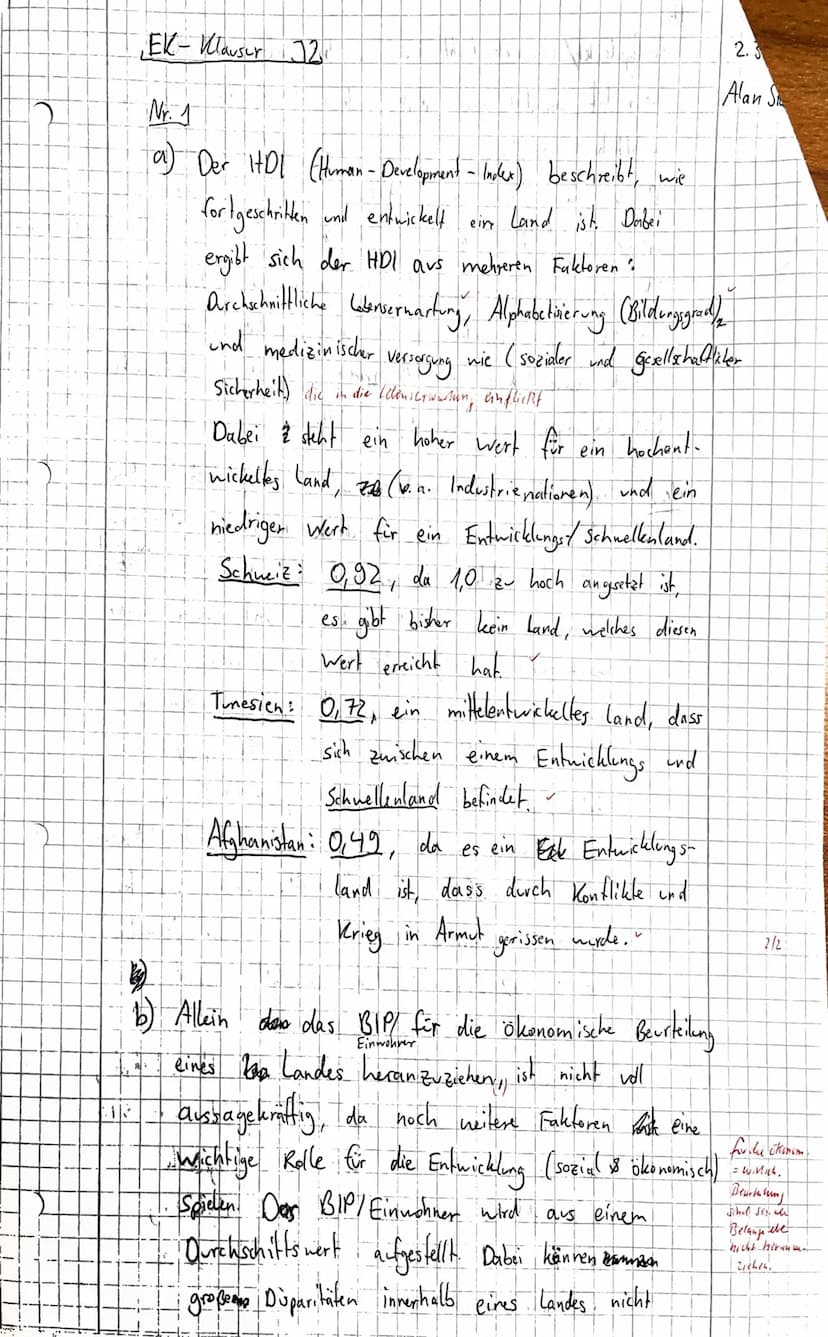 EK-Klausur J2
2.3
Alan S
Nr. 1
a) Der HDI (Human-Development-Index) beschreibt, wie
fortgeschritten und entwickelt ein Land ist. Dabei
ergibt sich der HDI aus mehreren Faktoren:
Durchschnittliche Lebenserwartung, Alphabetisierung (Bildungsgrad)
und medizinischer Versorgung wie (sozialer und gesellschaftlicher
Sicherheit) die in die Lebenserwartung einfließt
Dabei steht ein hoher Wert für ein hochent-
wickeltes Land, (v.a. Industrienationen) und ein
niedriger Wert für ein Entwicklungs/Schwellenland.
Schweiz: 0,92, da 1,0 zu hoch angesetzt ist,
es gibt bisher kein Land, welches diesen
Wert erreicht hat.
Tunesien: 0,72, ein mittelentwickeltes Land, dass
sich zwischen einem Entwicklungs und
Schwellenland befindet.
Afghanistan: 0,49, da es ein Entwicklungs-
land ist, dass durch Konflikte und
Krieg in Armut gerissen wurde.
2/2
b) Allein das BIP/Einwohner für die ökonomische Beurteilung
eines Landes heranzuziehen, ist nicht voll
aussagekräftig, da noch weitere Faktoren eine
wichtige Rolle für die Entwicklung (sozial & ökonomisch)
spielen. Das BIP/Einwohner wird aus einem
Durchschittswert aufgestellt. Dabei können
große Disparitäten innerhalb eines Landes nicht
für die ökonom.
= wirtsch.
Beurteilung
Belange
nicht heranzu-
ziehen.